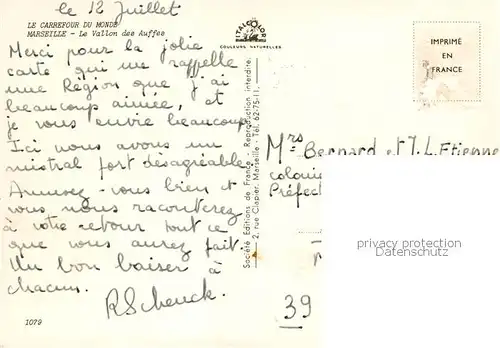 le 12 Juillet
LE CARREFOUR DU MONDE
MARSEILLE - Le Vallon des Auffes
Merci pour la jolie
carte qui me rappelle
une Région que j'ai
beaucoup aimée, et
je vous envie beaucoup.
Ici nous avons un
mistral fort désagréable.
Amusez-vous bien et
vous nous raconterez
à votre retour tout ce
que vous aurez fait.
Un bon baiser à
chacun.
RSchenck.
1079
ITALCOLOR
COULEURS NATURELLES
Société Editions de France - Reproduction interdire.
2, rue Clapier, Marseille - Tél. 62-75-11.
IMPRIMÉ
EN
FRANCE
Mrs Bernard et J.L. Etienne
colonie
Préfec
39
privacy protection
Datenschutz